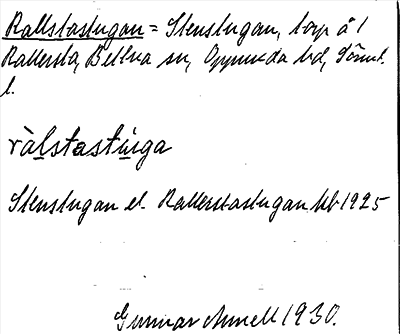 Rallstastugan = Stenstugan, torp å 1
Rallersta, Bettna sn, Oppunda hd, Sörml.
l.
ràlstastùga
Stenstugan el. Rallerstastugan Jb 1925
Gunnar Annell 1930.